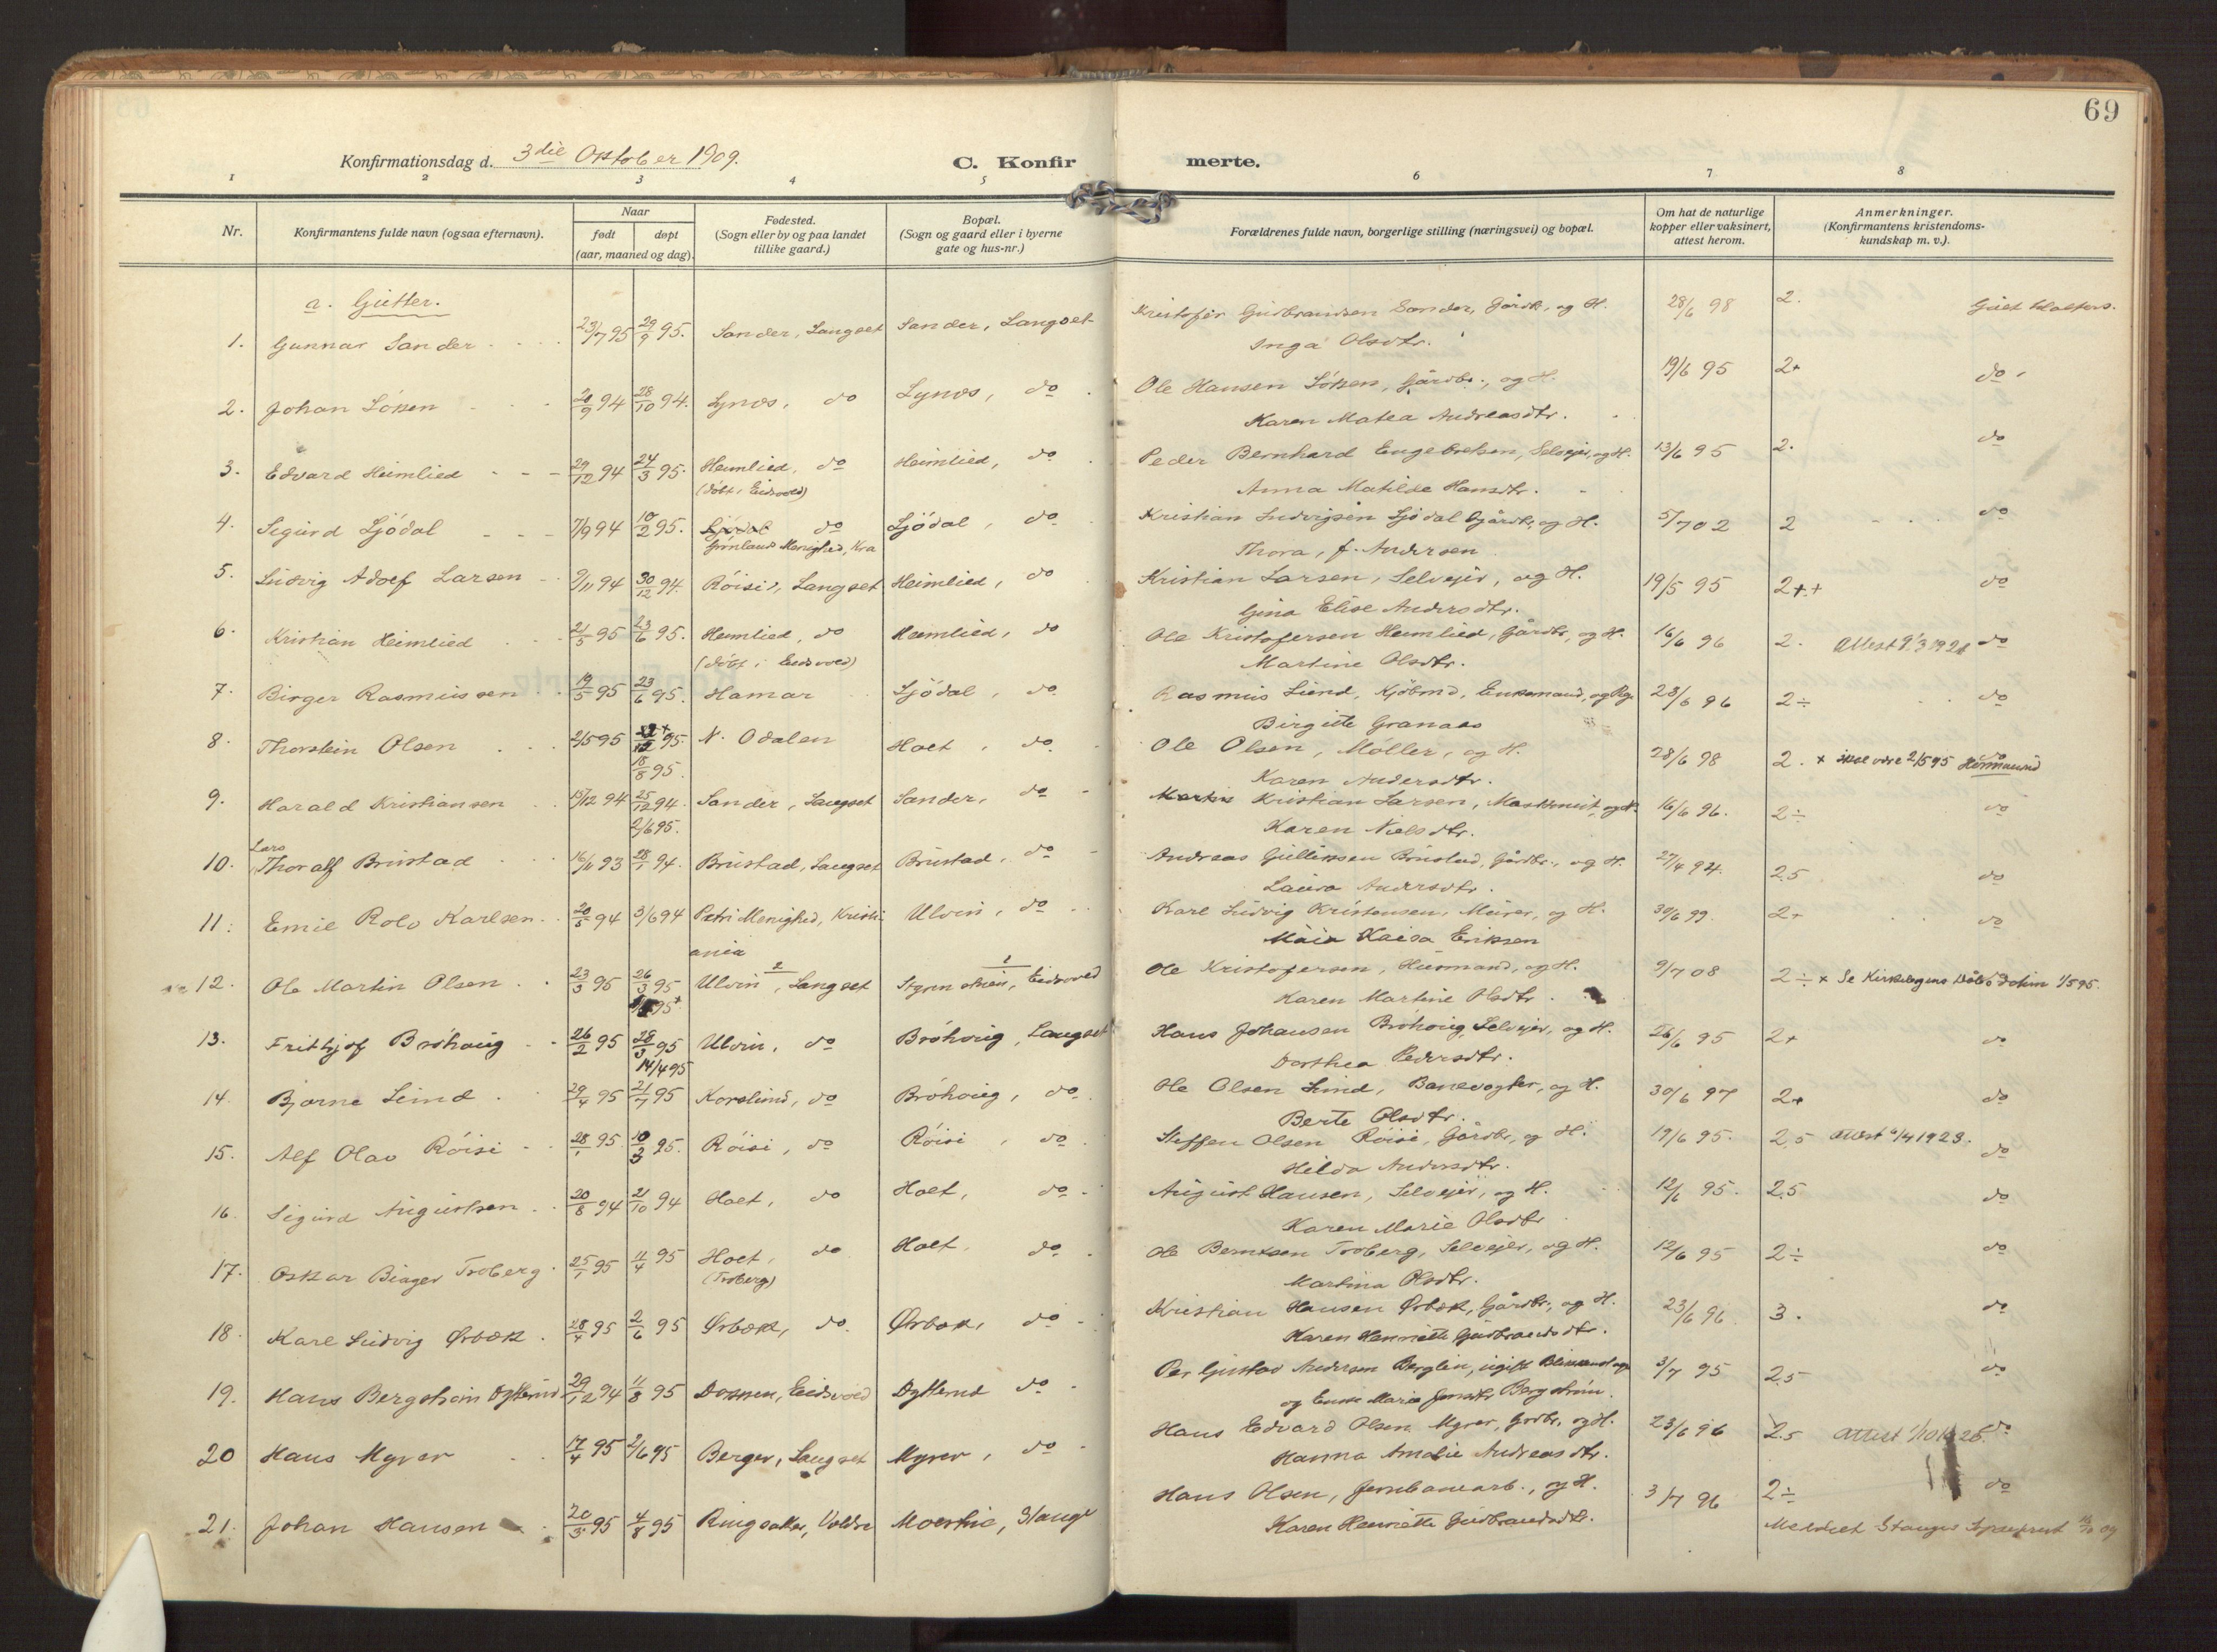 69
Konfirmationsdag d. 3die Oktober 1909.
C. Konfirmerte.
1 2 3 4 5 6 7 8
Nr.
Konfirmantens fulde navn (ogsaa efternavn).
Naar
født døpt
(aar, maaned og dag).
Fødested.
(Sogn eller by og paa landet
tillike gaard.)
Bopæl.
(Sogn og gaard eller i byerne
gate og hus-nr.)
Forældrenes fulde navn, borgerlige stilling (næringsvei) og bopæl.
Om hat de naturlige
kopper eller vaksinert,
attest herom.
Anmerkninger.
(Konfirmantens kristendoms-
kundskap m. v.).
a. Gutter.
1. Gunnar Sander 23/7 95 29/9 95. Sander, Langset Sander, Langset Kristofer Gudbrandsen Sander, Gårdb. og H. 28/6 98 2.
Inga Olsdtr.
2. Johan Löken 20/9 94 28/10 94. Lynes, do Lynes, do Ole Hansen Löken, Gårdbr., og H. 19/6 95 2+ do
Karen Matea Andreasdtr.
3. Edvard Heimlied 29/12 94 24/3 95. Heimlied, do Heimlied, do Peder Bernhard Engebretsen, Selvejer, og H. 13/6 95 2. do
(döbt i Eidsvold) Anna Matilde Hansdtr.
4. Sigurd Ljödal 7/9 94 10/2 95. Ljödal do Ljödal, do Kristian Ludvigsen Ljödal Gårdbr, og H. 5/7 02 2 do
Grönlands Menighed, Kra Thora, f. Andersen
5. Ludvig Adolf Larsen 9/11 94 30/12 94. Röisi, Langset Heimlied, do Kristian Larsen, Selvejer, og H. 19/5 95 2++ do
Gina Elise Andersdtr.
6. Kristian Heimlied 21/5 95 23/6 95. Heimlied, do Heimlied, do Ole Kristofersen Heimlied, Gårdbr, og H. 16/6 96 2. do
(döbt i Eidsvold) Martine Olsdtr.
7. Birger Rasmussen 19/5 95 23/6 95. Hamar Ljödal, do Rasmus Lund, Kjöbmd, Enkemand, og 28/6 96 2÷ do
Birgitte Granaas
8. Thorstein Olsen 2/5 95 N. Odalen Holt, do Ole Olsen, Möller, og H. 28/6 98 2. × skal være 2/5 95 do
18/8 95. Karen Andersdtr.
9. Harald Kristiansen 15/12 94 25/12 94. Sander, Langset Sander, do Martin Kristian Larsen, og H. 16/6 96. 2÷ do
2/6 95. Karen Nielsdtr.
10. Lars Thoralf Brustad 16/11 93 28/1 94. Brustad, Langset Brustad, do Andreas Gulliksen Brustad, Gårdbr., og H. 27/4 94. 2.5 do
Laura Andersdtr.
11. Emil Rolv Karlsen 20/5 94 3/6 94 Petri Menighed, Kristi- Ulvin, do Karl Ludvig Kristensen, Murer, og H. 30/6 99. 2+ do
ania Maia Kaisa Eriksen
12. Ole Martin Olsen 23/3 95 26/3 95 Ulvin, Langset Eidsvold Ole Kristofersen, Husmand, og H. 9/7 08 2÷ × Se Kirkebogens
Karen Martine Olsdtr.
13. Frithjof Bröhaug 26/2 95 28/3 95 Ulvin, do Bröhaug, Langset Hans Johansen Bröhaug, Selvejer, og H. 26/6 95 2+ do
14/4 95 Dorthea Pedersdtr.
14. Bjarne Lund 29/4 95 21/7 95 Korslund, do Bröhaug, do Ole Olsen Lund, Banevogter, og H. 30/6 97 2+ do
Berte Olsdtr.
15. Alf Olav Röisi 28/1 95. 10/3 95. Röisi, do Röisi, do Steffen Olsen Röisi, Gårdbr, og H. 19/6 95. 2.5 do
Hilda Andersdtr.
16. Sigurd Augustsen 20/8 94 21/10 94 Holt, do Holt, do August Hansen, Selvejer, og H. 12/6 95. 2.5 do
Karen Marie Olsdtr
17. Oskar Birger Troberg 25/1 95 11/4 95 Holt, do Holt, do Ole Berntsen Troberg, Selvejer, og H. 12/6 95 2÷ do
(Troberg) Martina Olsdtr.
18. Karl Ludvig Ørbæk 28/4 95 2/6 95 Ørbæk, do Ørbæk, do Kristian Hansen Ørbæk, Gårdbr., og H. 23/6 96 3. do
Karen Henriette Gudbrandsdtr.
19. Hans Bergström Dytterud 29/12 94 11/8 95 Eidsvold Dytterud do Per Gustav Andersen Berglin, ugift 3/7 95 2.5 do
og Enke Maria Bergström
20 Hans Myrer 17/4 95 2/6 95 Berger, Langset Myrer, do Hans Edvard Olsen Myrer, Grdbr, og H. 23/6 96 2.5 do
Hanna Amalie Andreasdtr.
21. Johan Hansen 20/3 95 4/8 95 Ringsaker, Voldre Stange Hans Olsen, Jernbanearb., og H. 3/7 96 2÷ do
Karen Henriette Gudbrandsdtr. Meddelt Stange